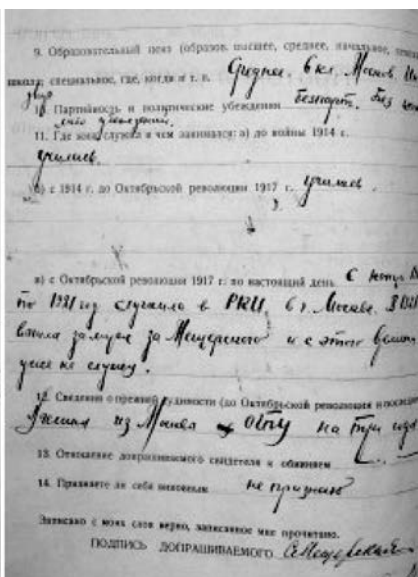 9. Образовательный ценз (образов. высшее, среднее, начальное,
школа, специальное, где, когда и т. п. Среднее, 6 кл. Москов.
10. Партийность и политические убеждения беспарт. без
11. Где жил, служил и чем занимался: а) до войны 1914 г.
училась.
б) с 1914 г. до Октябрьской революции 1917 г. училась.
в) с Октябрьской революции 1917 г. по настоящий день С
по 1921 год служила в РКИ, в г. Москве. В
вышла замуж за Мещерского и с этого
уже не служу.
12. Сведения о прежней судимости (до Октябрьской революции и
из ОГПУ на три
13. Отношение допрашиваемого свидетеля к обвиняем
14. Признаете ли себя виновным не признаю
Записано с моих слов верно, записанное мне прочитано.
ПОДПИСЬ ДОПРАШИВАЕМОГО